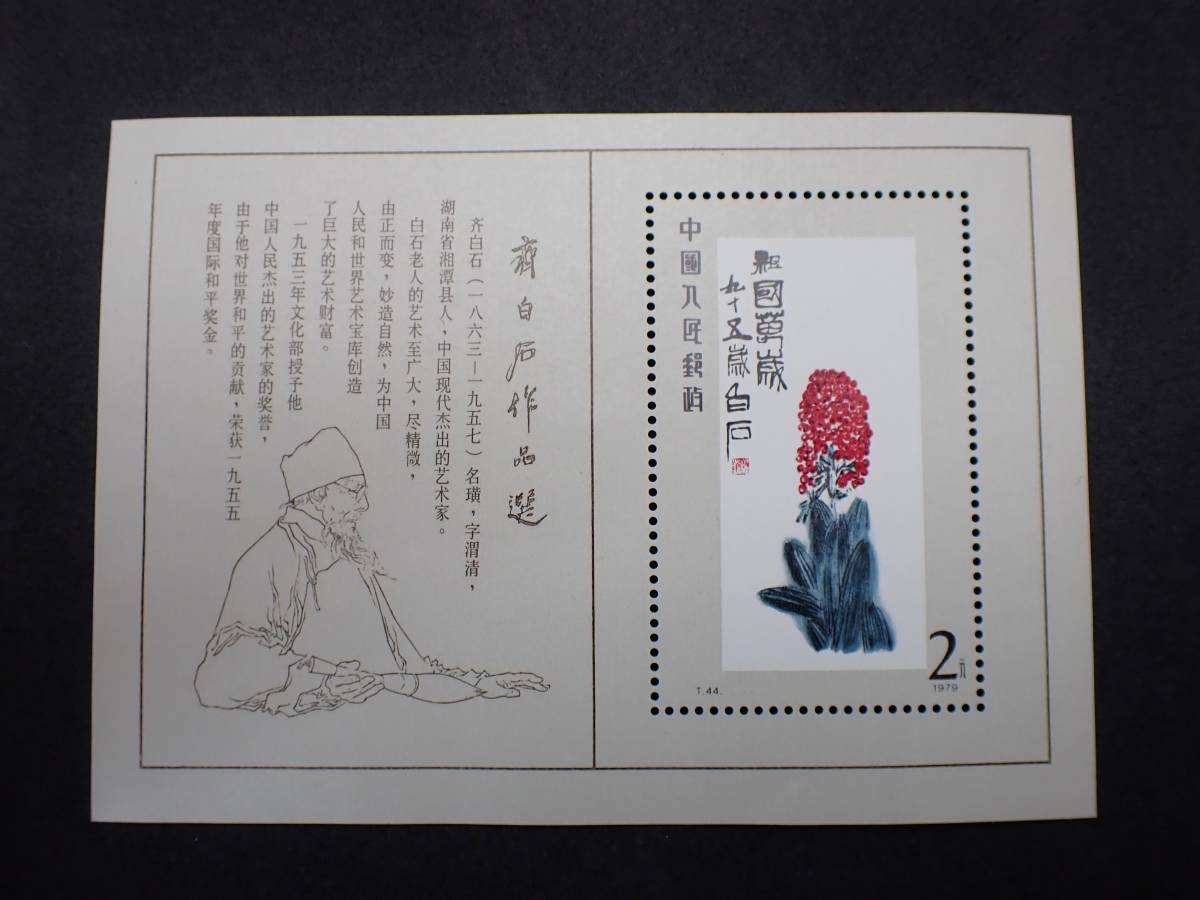 齊白石作品選
齐白石(一八六三—一九五七)名璜,字渭清,
湖南省湘潭县人,中国现代杰出的艺术家。
白石老人的艺术至广大,尽精微,
由正而变,妙造自然,为中国
人民和世界艺术宝库创造
了巨大的艺术财富。
一九五三年文化部授予他
中国人民杰出的艺术家的奖誉,
由于他对世界和平的贡献,荣获一九五五
年度国际和平奖金。
中國人民郵政
祖國萬歲
九十五歲白石
T.44.
2元
1979